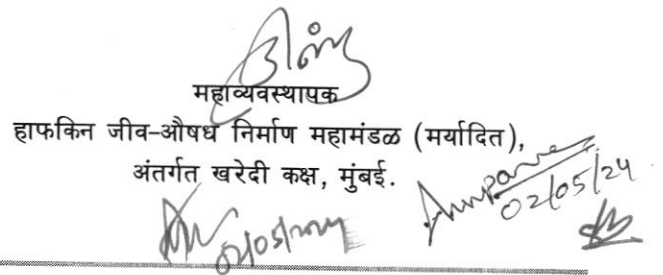 महाव्यवस्थापक
हाफकिन जीव-औषध निर्माण महामंडळ (मर्यादित),
अंतर्गत खरेदी कक्ष, मुंबई.
02/05/24